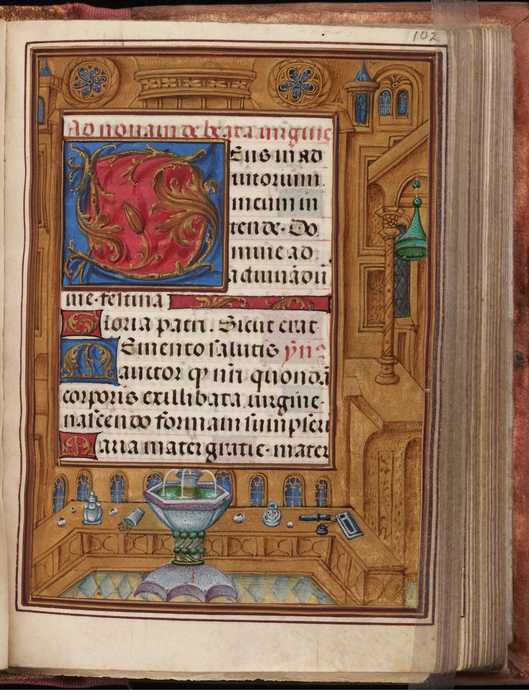 102
Ad nonam de beata virgine
Deus in ad
iutorium
meum in
tende. Do
mine ad
adiuuādū
me festina
Gloria patri. Sicut erat
Memento salutis ymꝰ
auctor qđ nr̄i quondā
corporis ex illibata uirgine
nascendo formam sumpseri
Maria mater gratie. mater